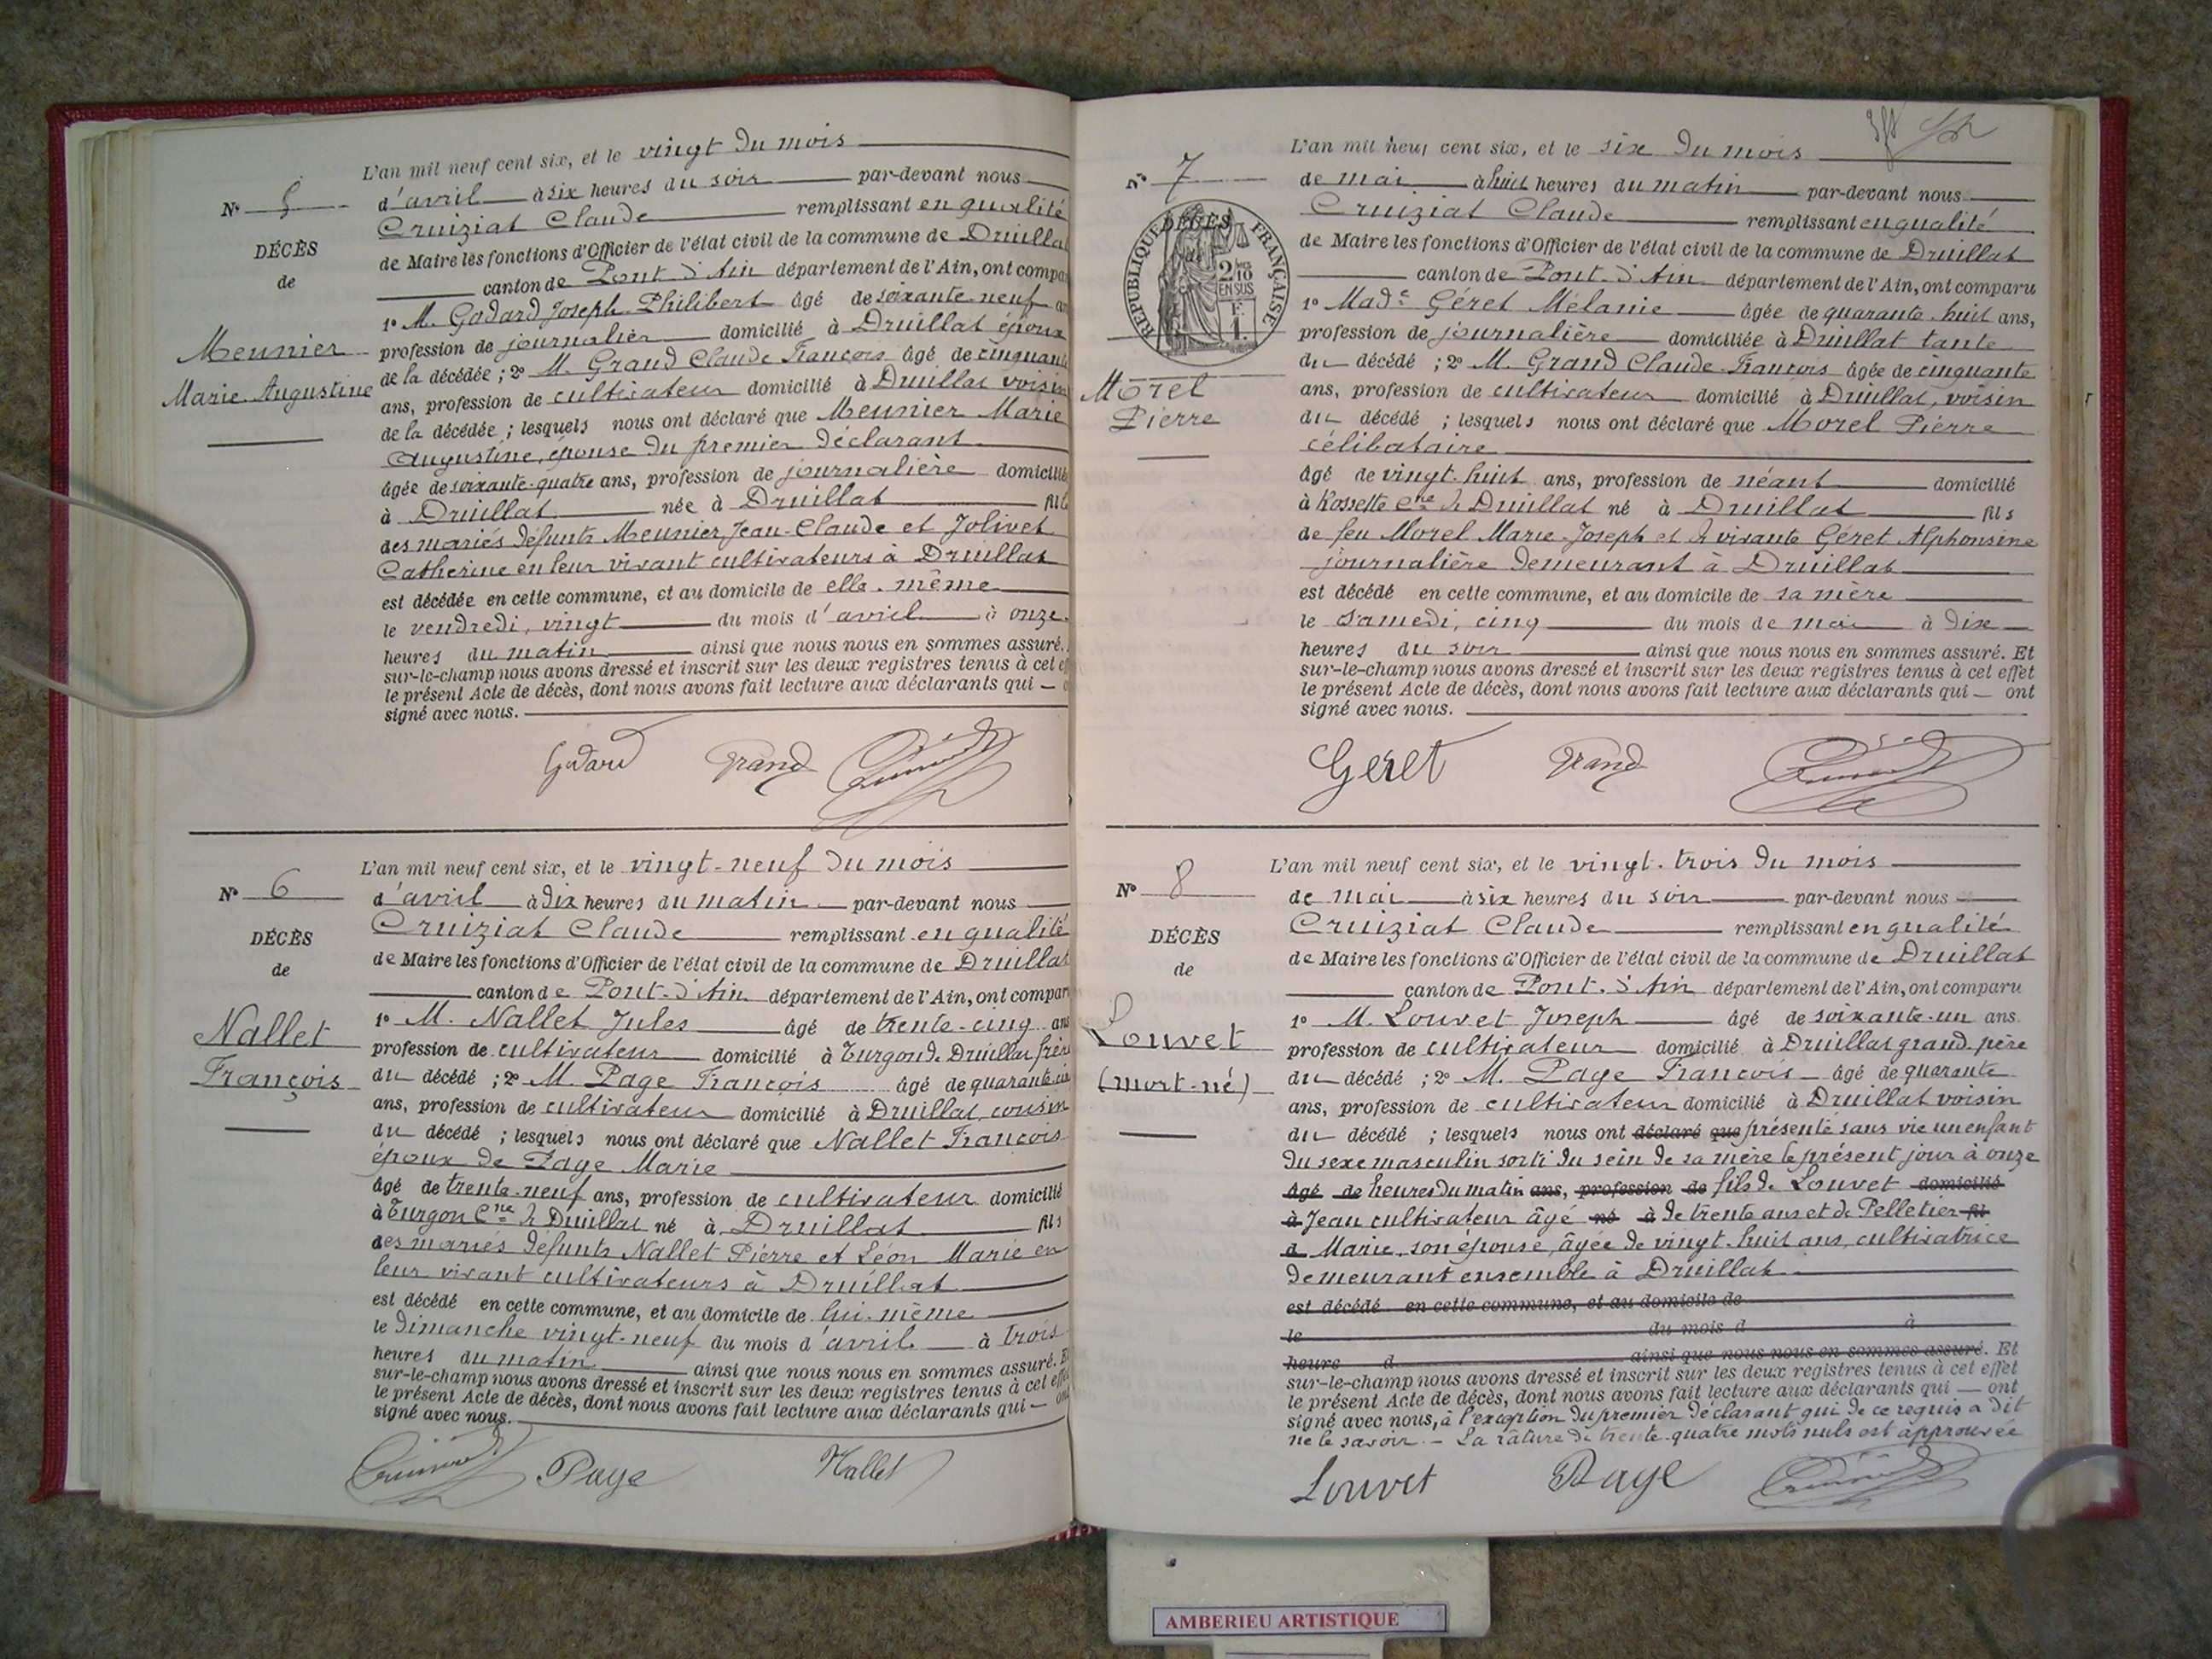 L'an mil neuf cent six, et le vingt du mois
d'avril à six heures du soir par-devant nous
N° 5
Cruiziat Claude remplissant en qualité
DÉCÈS
de Maire les fonctions d'Officier de l'état civil de la commune de Druillat
de
canton de Pont d'Ain département de l'Ain, ont compa
1° M. Godard Joseph Philibert âgé de soixante-neuf an
Meunier
profession de journalier domicilié à Druillat époux
Marie Augustine
de la décédée ; 2° M. Grand Claude François âgé de cinquante
ans, profession de cultivateur domicilié à Druillat voisin
de la décédée ; lesquels nous ont déclaré que Meunier Marie
Augustine, épouse du premier déclarant
âgée de soixante-quatre ans, profession de journalière domicilié
à Druillat née à Druillat fille
des mariés défunts Meunier Jean-Claude et Jolivet
Catherine en leur vivant cultivateurs à Druillat
est décédée en cette commune, et au domicile de elle-même
le vendredi, vingt du mois d'avril à onze
heures du matin ainsi que nous nous en sommes assuré.
sur-le-champ nous avons dressé et inscrit sur les deux registres tenus à cet ef
le présent Acte de décès, dont nous avons fait lecture aux déclarants qui — o
signé avec nous.
Godard Grand Cruiziat
L'an mil neuf cent six, et le vingt-neuf du mois
N° 6
d'avril à dix heures du matin par-devant nous
Cruiziat Claude remplissant en qualité
DÉCÈS
de Maire les fonctions d'Officier de l'état civil de la commune de Druillat
de
canton de Pont-d'Ain département de l'Ain, ont compar
Nallet
1° M. Nallet Jules âgé de trente-cinq ans
François
profession de cultivateur domicilié à Turgon de Druillat frère
du décédé ; 2° M. Page François âgé de quarante
ans, profession de cultivateur domicilié à Druillat, cousin
du décédé ; lesquels nous ont déclaré que Nallet François
époux de Page Marie
âgé de trente-neuf ans, profession de cultivateur domicilié
à Turgon Cne de Druillat né à Druillat fils
des mariés défunts Nallet Pierre et Léon Marie en
leur vivant cultivateurs à Druillat
est décédé en cette commune, et au domicile de lui-même
le Dimanche vingt-neuf du mois d'avril à trois
heures du matin ainsi que nous nous en sommes assuré. E
sur-le-champ nous avons dressé et inscrit sur les deux registres tenus à cet effet
le présent Acte de décès, dont nous avons fait lecture aux déclarants qui — ont
signé avec nous.
Cruiziat Page Nallet
L'an mil neuf cent six, et le six du mois
N° 7
de mai à huit heures du matin par-devant nous
Cruiziat Claude remplissant en qualité
de Maire les fonctions d'Officier de l'état civil de la commune de Druillat
DÉCÈS
RÉPUBLIQUE FRANÇAISE
2/10 EN SUS
canton de Pont-d'Ain département de l'Ain, ont comparu
1° Made Géret Mélanie âgée de quarante-huit ans,
profession de journalière domiciliée à Druillat tante
Morel
Pierre
du décédé ; 2° M. Grand Claude-François âgée de cinquante
ans, profession de cultivateur domicilié à Druillat, voisin
du décédé ; lesquels nous ont déclaré que Morel Pierre
célibataire
âgé de vingt-huit ans, profession de néant domicilié
à Rossette Cne de Druillat né à Druillat fils
de feu Morel Marie-Joseph et de vivante Géret Alphonsine
journalière demeurant à Druillat
est décédé en cette commune, et au domicile de sa mère
le Samedi, cinq du mois de mai à dix
heures du soir ainsi que nous nous en sommes assuré. Et
sur-le-champ nous avons dressé et inscrit sur les deux registres tenus à cet effet
le présent Acte de décès, dont nous avons fait lecture aux déclarants qui — ont
signé avec nous.
Géret Grand Cruiziat
L'an mil neuf cent six, et le vingt-trois du mois
N° 8
de mai à six heures du soir par-devant nous
Cruiziat Claude remplissant en qualité
DÉCÈS
de Maire les fonctions d'Officier de l'état civil de la commune de Druillat
de
canton de Pont-d'Ain département de l'Ain, ont comparu
Louvet
1° M. Louvet Joseph âgé de soixante-un ans
profession de cultivateur domicilié à Druillat grand-père
(mort-né)
du décédé ; 2° M. Page François âgé de quarante
ans, profession de cultivateur domicilié à Druillat voisin
du décédé ; lesquels nous ont déclaré que présenté sans vie un enfant
du sexe masculin sorti du sein de sa mère le présent jour à onze
âgé de heures du matin ans, profession de fils de Louvet domicilié
à Jean cultivateur âgé né à de trente ans et de Pelletier fil
d Marie, son épouse, âgée de vingt-huit ans, cultivatrice
demeurant ensemble à Druillat
est décédé en cette commune, et au domicile de
le du mois d à
heure d ainsi que nous nous en sommes assuré. Et
sur-le-champ nous avons dressé et inscrit sur les deux registres tenus à cet effet
le présent Acte de décès, dont nous avons fait lecture aux déclarants qui — ont
signé avec nous, à l'exception du premier déclarant qui de ce requis a dit
ne le savoir. — La râture de trente-quatre mots nuls est approuvée
Louvet Page Cruiziat
AMBERIEU ARTISTIQUE